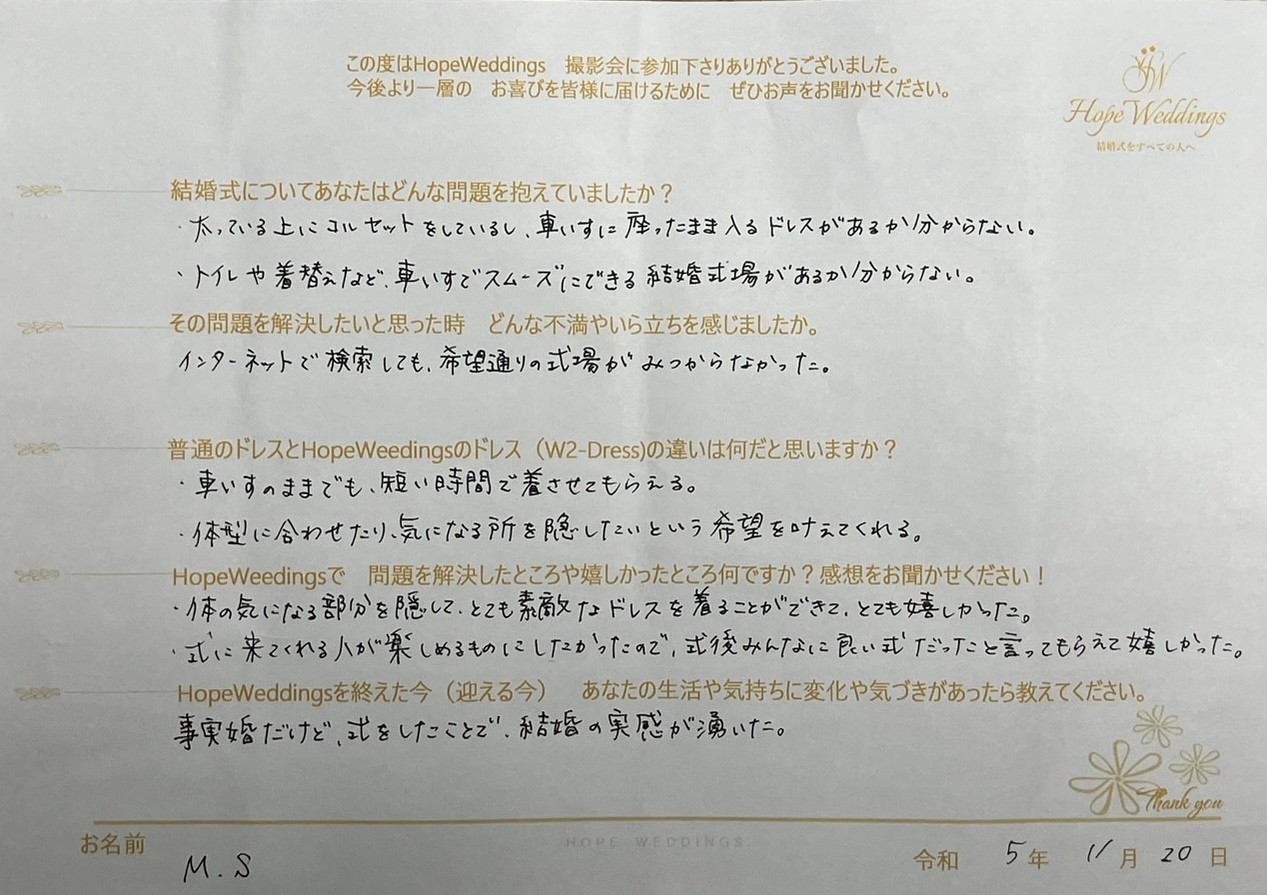 この度はHopeWeddings 撮影会に参加下さりありがとうございました。
今後より一層の お喜びを皆様に届けるために ぜひお声をお聞かせください。
HW
Hope Weddings
結婚式をすべての人へ
結婚式についてあなたはどんな問題を抱えていましたか？
・太っている上にコルセットをしているし、車いすに座ったまま入るドレスがあるか分からない。
・トイレや着替えなど、車いすでスムーズにできる結婚式場があるか分からない。
その問題を解決したいと思った時 どんな不満やいら立ちを感じましたか。
インターネットで検索しても、希望通りの式場がみつからなかった。
普通のドレスとHopeWeedingsのドレス（W2-Dress)の違いは何だと思いますか？
・車いすのままでも、短い時間で着させてもらえる。
・体型に合わせたり、気になる所を隠したいという希望を叶えてくれる。
HopeWeedingsで 問題を解決したところや嬉しかったところ何ですか？感想をお聞かせください！
・体の気になる部分を隠して、とても素敵なドレスを着ることができて、とても嬉しかった。
・式に来てくれる人が楽しめるものにしたかったので、式後みんなに良い式だったと言ってもらえて嬉しかった。
HopeWeddingsを終えた今（迎える今） あなたの生活や気持ちに変化や気づきがあったら教えてください。
事実婚だけど、式をしたことで、結婚の実感が湧いた。
Thank you
お名前 M.S
HOPE WEDDINGS.
令和 5年 11月 20日